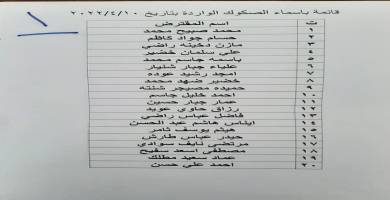 قائمة باسماء الصكوك الواردة بتاريخ ٢٠٢٢/٤/١٠
ت اسم المقترض
١ محمد صبيح محمد
٢ حسام جواد كاظم
٣ مازن دخينه راضي
٤ علي سلمان خضير
٥ باسمه جاسم محمد
٦ علياء جبار شنيار
٧ امجد رشيد عوده
٨ خضير شهد محمد
٩ حميده مصيجر شتته
١٠ احمد خليل جاسم
١١ عمار جبار حسين
١٢ رزاق حاوي عويد
١٣ فاضل عباس راضي
١٤ ايناس هاشم عبد الحسن
١٥ هيثم يوسف ثامر
١٦ حيدر عباس طارش
١٧ مرتضى نايف سوادي
١٨ مصطفى اسعد سفيح
١٩ عماد سعيد مطلك
٢٠ احمد علي حسن